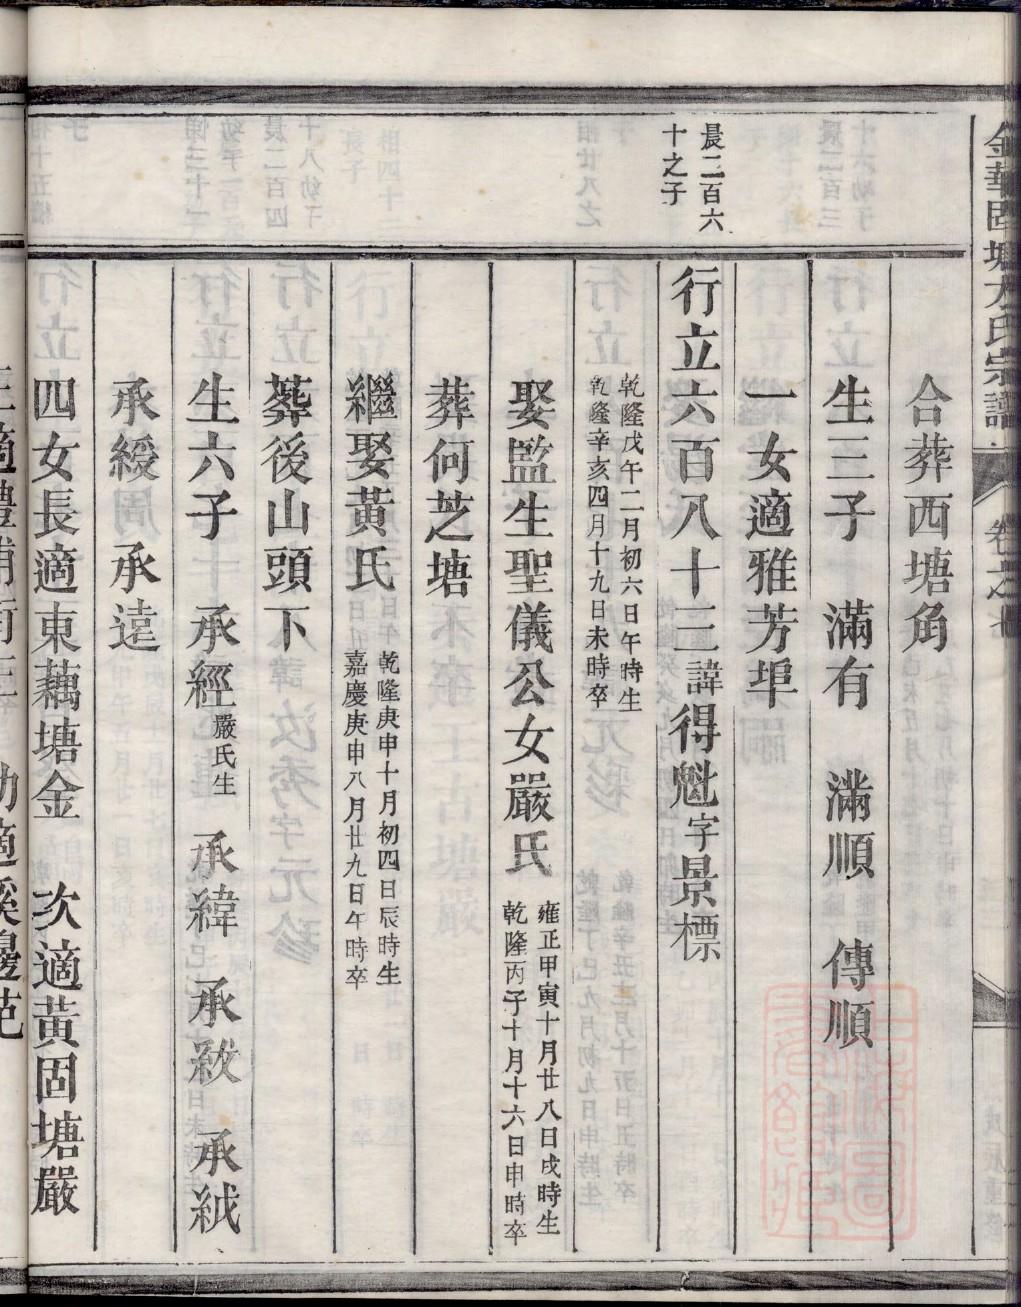 金華固塘方氏宗譜
卷之七
合葬西塘角
生三子　滿有　滿順　傳順
一女適雅芳埠
晨二百六
十之子
行立六百八十三諱得魁字景標
乾隆戊午二月初六日午時生
乾隆辛亥四月十九日未時卒
娶監生聖儀公女嚴氏
雍正甲寅十月廿八日戌時生
乾隆丙子十月十六日申時卒
葬何芝塘
繼娶黃氏
乾隆庚申十月初四日辰時生
嘉慶庚申八月廿九日午時卒
葬後山頭下
生六子　承經嚴氏生　承緯　承紱　承絨
承綬　承遠
四女長適東藕塘金　次適黃固塘嚴